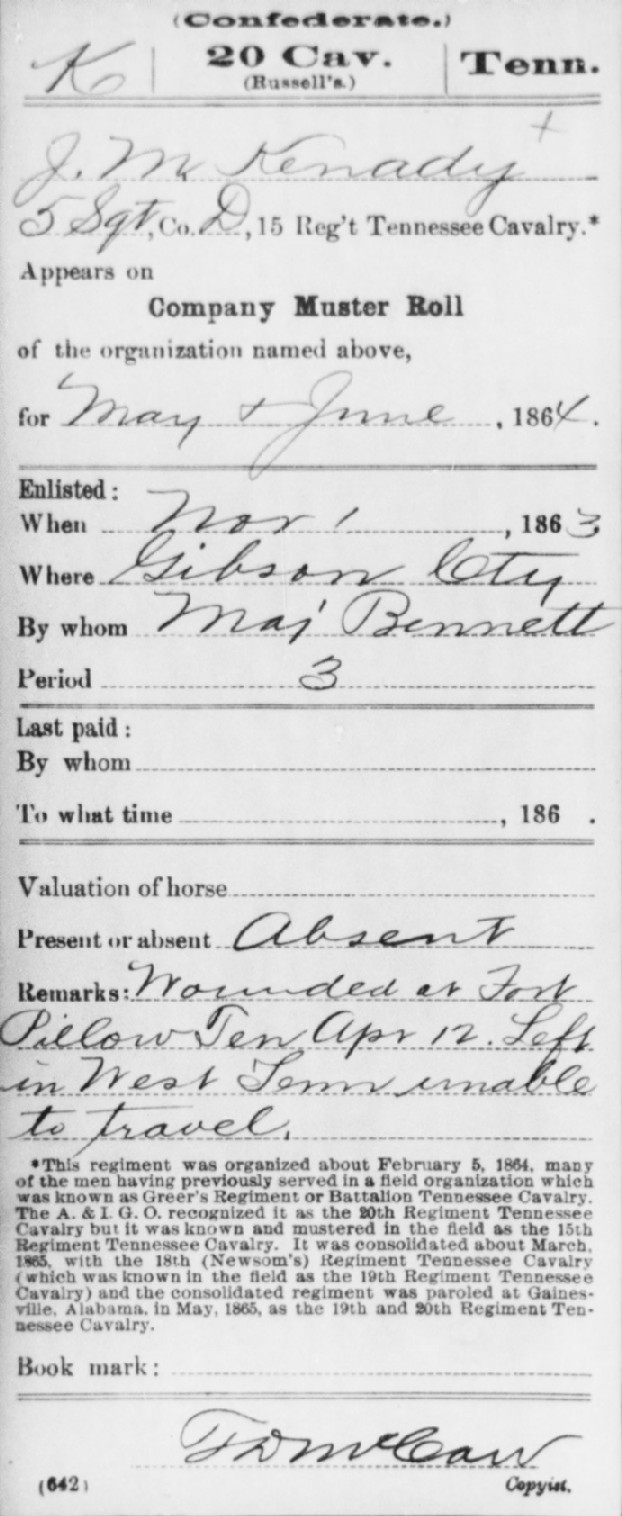 (Confederate.)
K | 20 Cav. | Tenn.
(Russell's.)
J. M. Kenady +
5 Sgt, Co. D, 15 Reg't Tennessee Cavalry.*
Appears on
Company Muster Roll
of the organization named above,
for May & June, 1864.
Enlisted:
When Nov 1, 1863
Where Gibson Cty
By whom Maj Bennett
Period 3
Last paid:
By whom
To what time, 186 .
Valuation of horse
Present or absent Absent
Remarks: Wounded at Fort
Pillow Ten Apr 12. Left
in West Tenn unable
to travel.
*This regiment was organized about February 5, 1864, many
of the men having previously served in a field organization which
was known as Greer's Regiment or Battalion Tennessee Cavalry.
The A. & I. G. O. recognized it as the 20th Regiment Tennessee
Cavalry but it was known and mustered in the field as the 15th
Regiment Tennessee Cavalry. It was consolidated about March,
1865, with the 18th (Newsom's) Regiment Tennessee Cavalry
(which was known in the field as the 19th Regiment Tennessee
Cavalry) and the consolidated regiment was paroled at Gaines-
ville, Alabama, in May, 1865, as the 19th and 20th Regiment Ten-
nessee Cavalry.
Book mark:
McCaw
(642) Copyist.